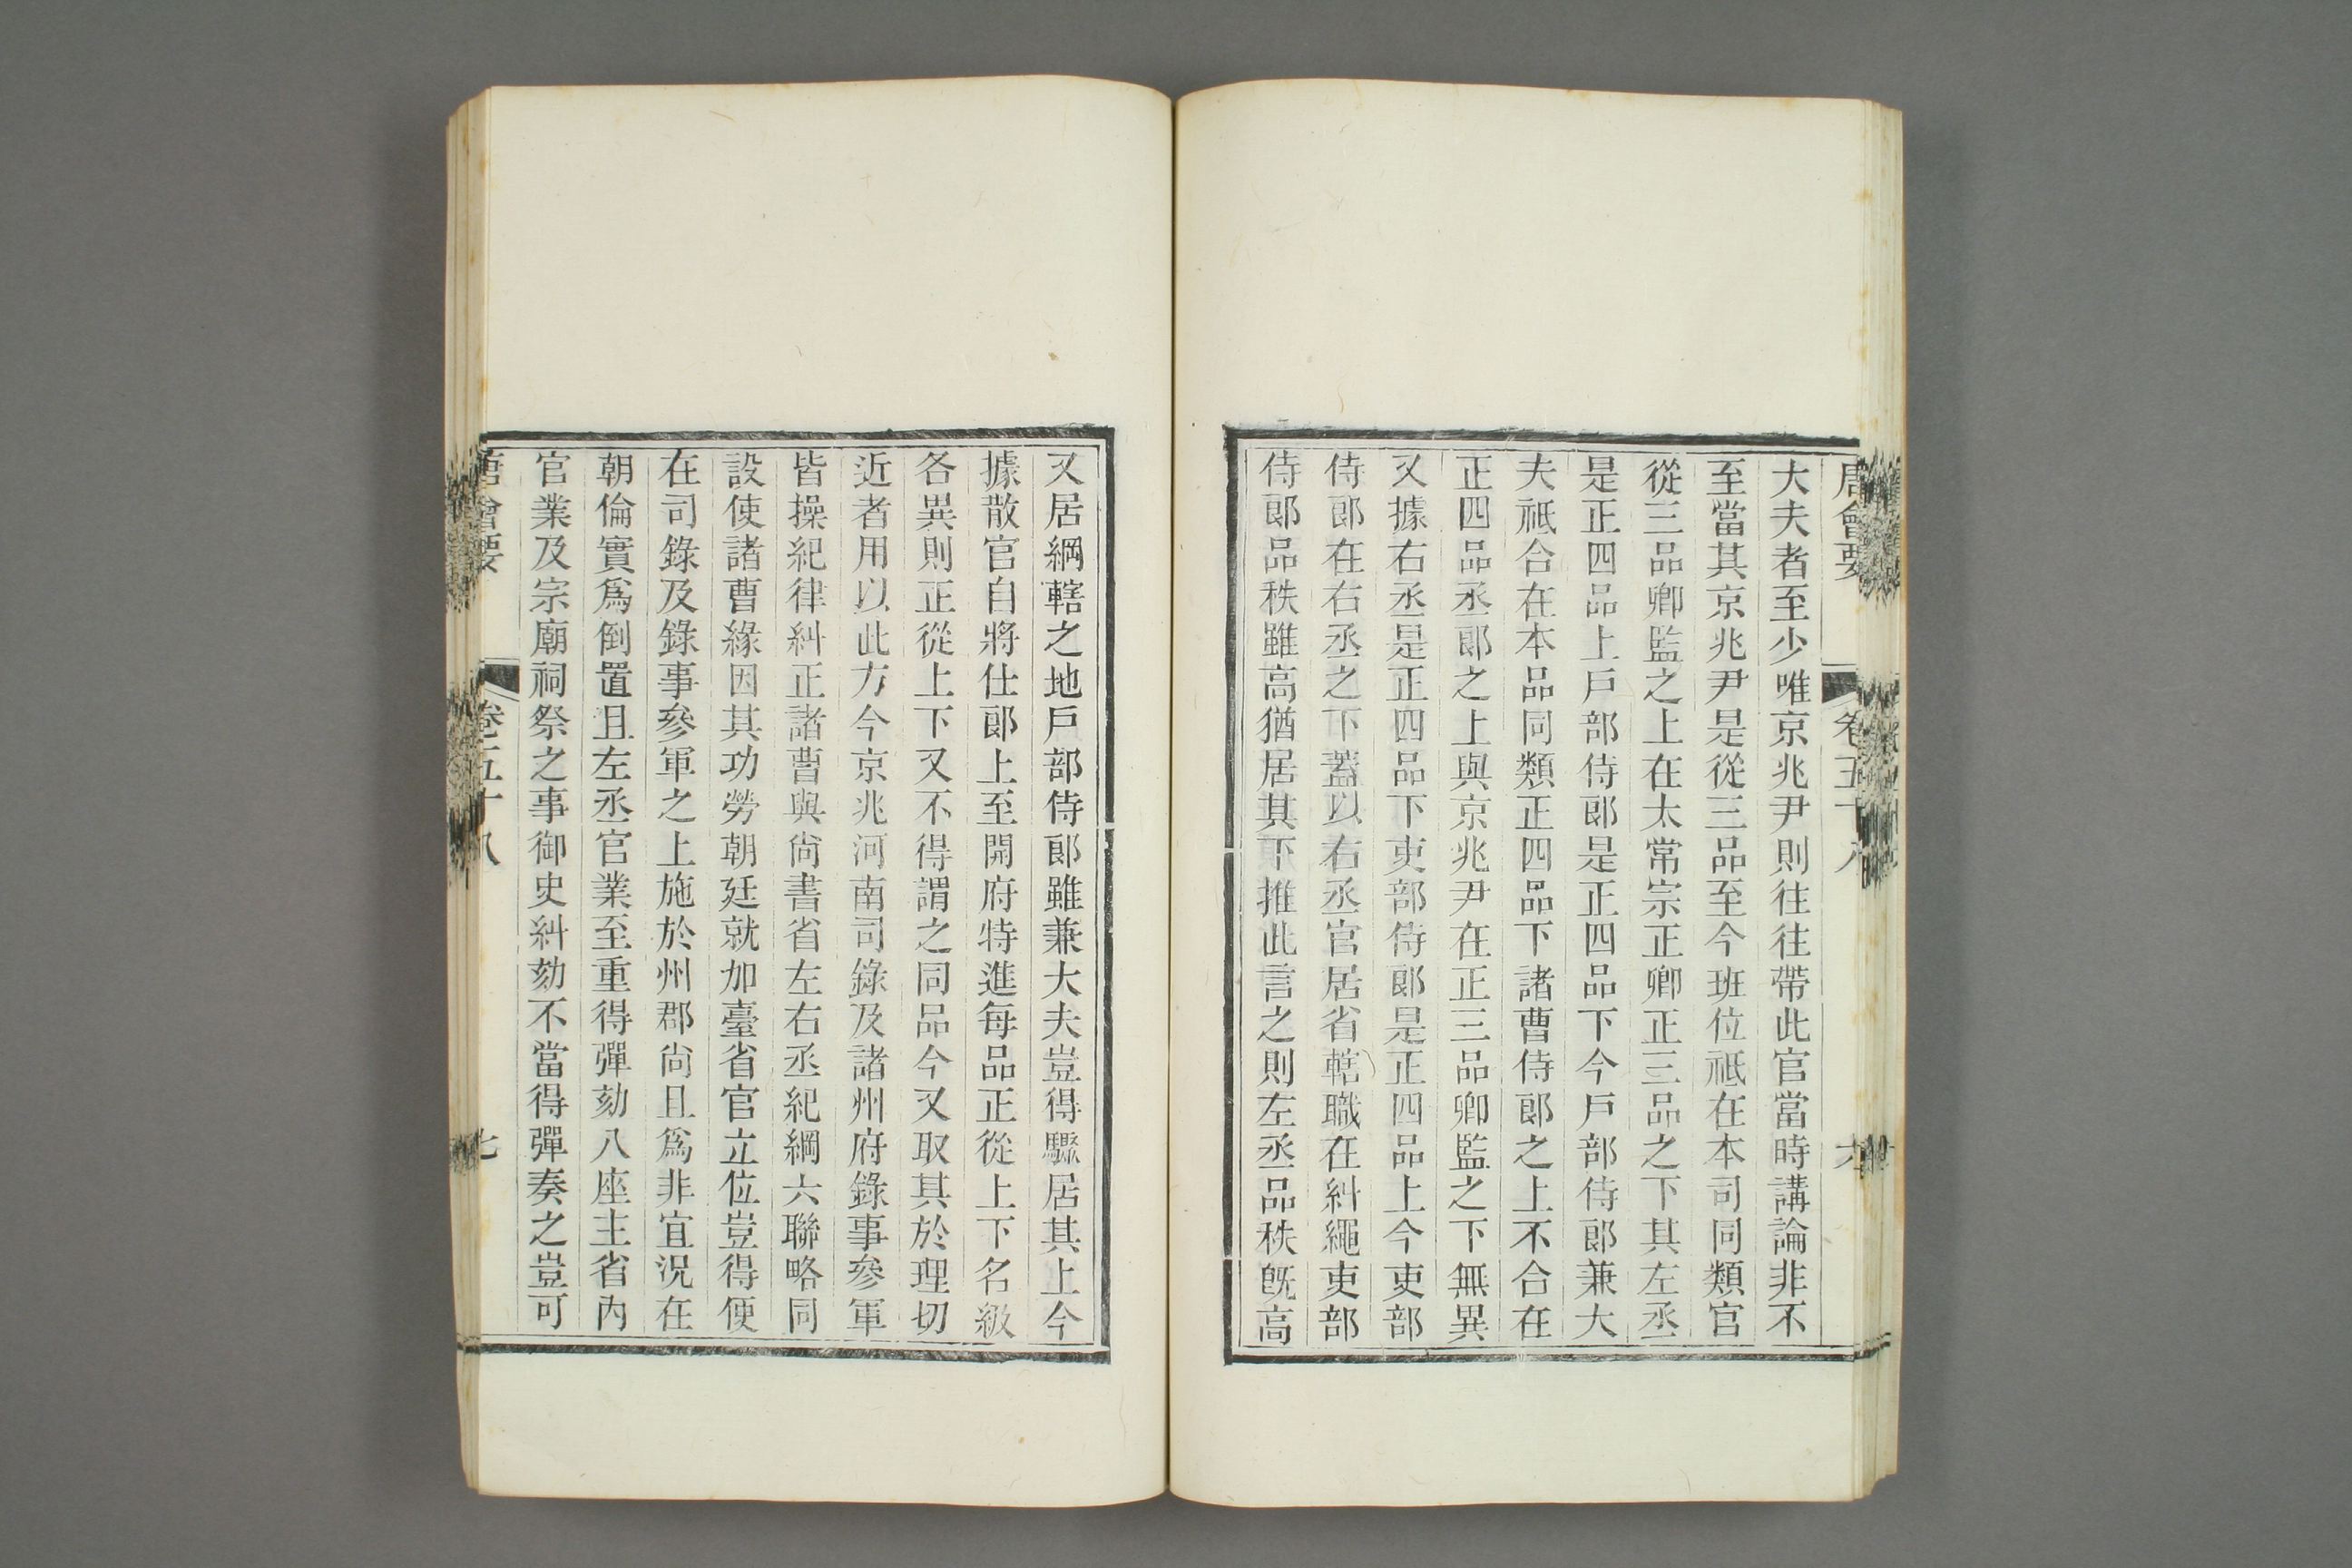 唐會要 卷五十八 六
大夫者至少唯京兆尹則往往帶此官當時講論非不
至當其京兆尹是從三品至今班位祗在本司同類官
從三品卿監之上在太常宗正卿正三品之下其左丞
是正四品上戶部侍郎是正四品下今戶部侍郎兼大
夫祗合在本品同類正四品下諸曹侍郎之上不合在
正四品丞郎之上與京兆尹在正三品卿監之下無異
又據右丞是正四品下吏部侍郎是正四品上今吏部
侍郎在右丞之下蓋以右丞官居省轄職在糾繩吏部
侍郎品秩雖高猶居其下推此言之則左丞品秩旣高
又居綱轄之地戶部侍郎雖兼大夫豈得驟居其上今
據散官自將仕郎上至開府特進每品正從上下名級
各異則正從上下又不得謂之同品今又取其於理切
近者用以此方今京兆河南司錄及諸州府錄事參軍
皆操紀律糾正諸曹與尙書省左右丞紀綱六聯略同
設使諸曹緣因其功勞朝廷就加臺省官立位豈得便
在司錄及錄事參軍之上施於州郡尙且爲非宜況在
朝倫實爲倒置且左丞官業至重得彈劾八座主省內
官業及宗廟祠祭之事御史糾劾不當得彈奏之豈可
唐會要 卷五十八 七